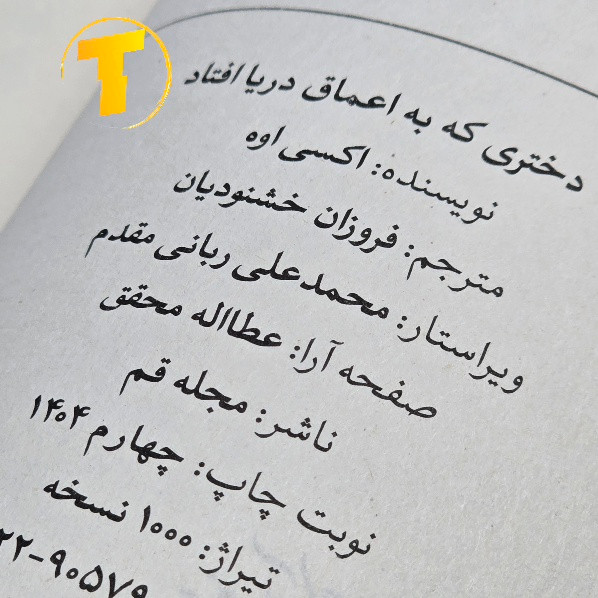 T
دختری که به اعماق دریا افتاد
نویسنده: اکسی اوه
مترجم: فروزان خشنودیان
ویراستار: محمدعلی ربانی مقدم
صفحه آرا: عطااله محقق
ناشر: مجله قم
نوبت چاپ: چهارم ۱۴۰۴
تیراژ: ۱۰۰۰ نسخه
۲۲-۹۰۵۷۹